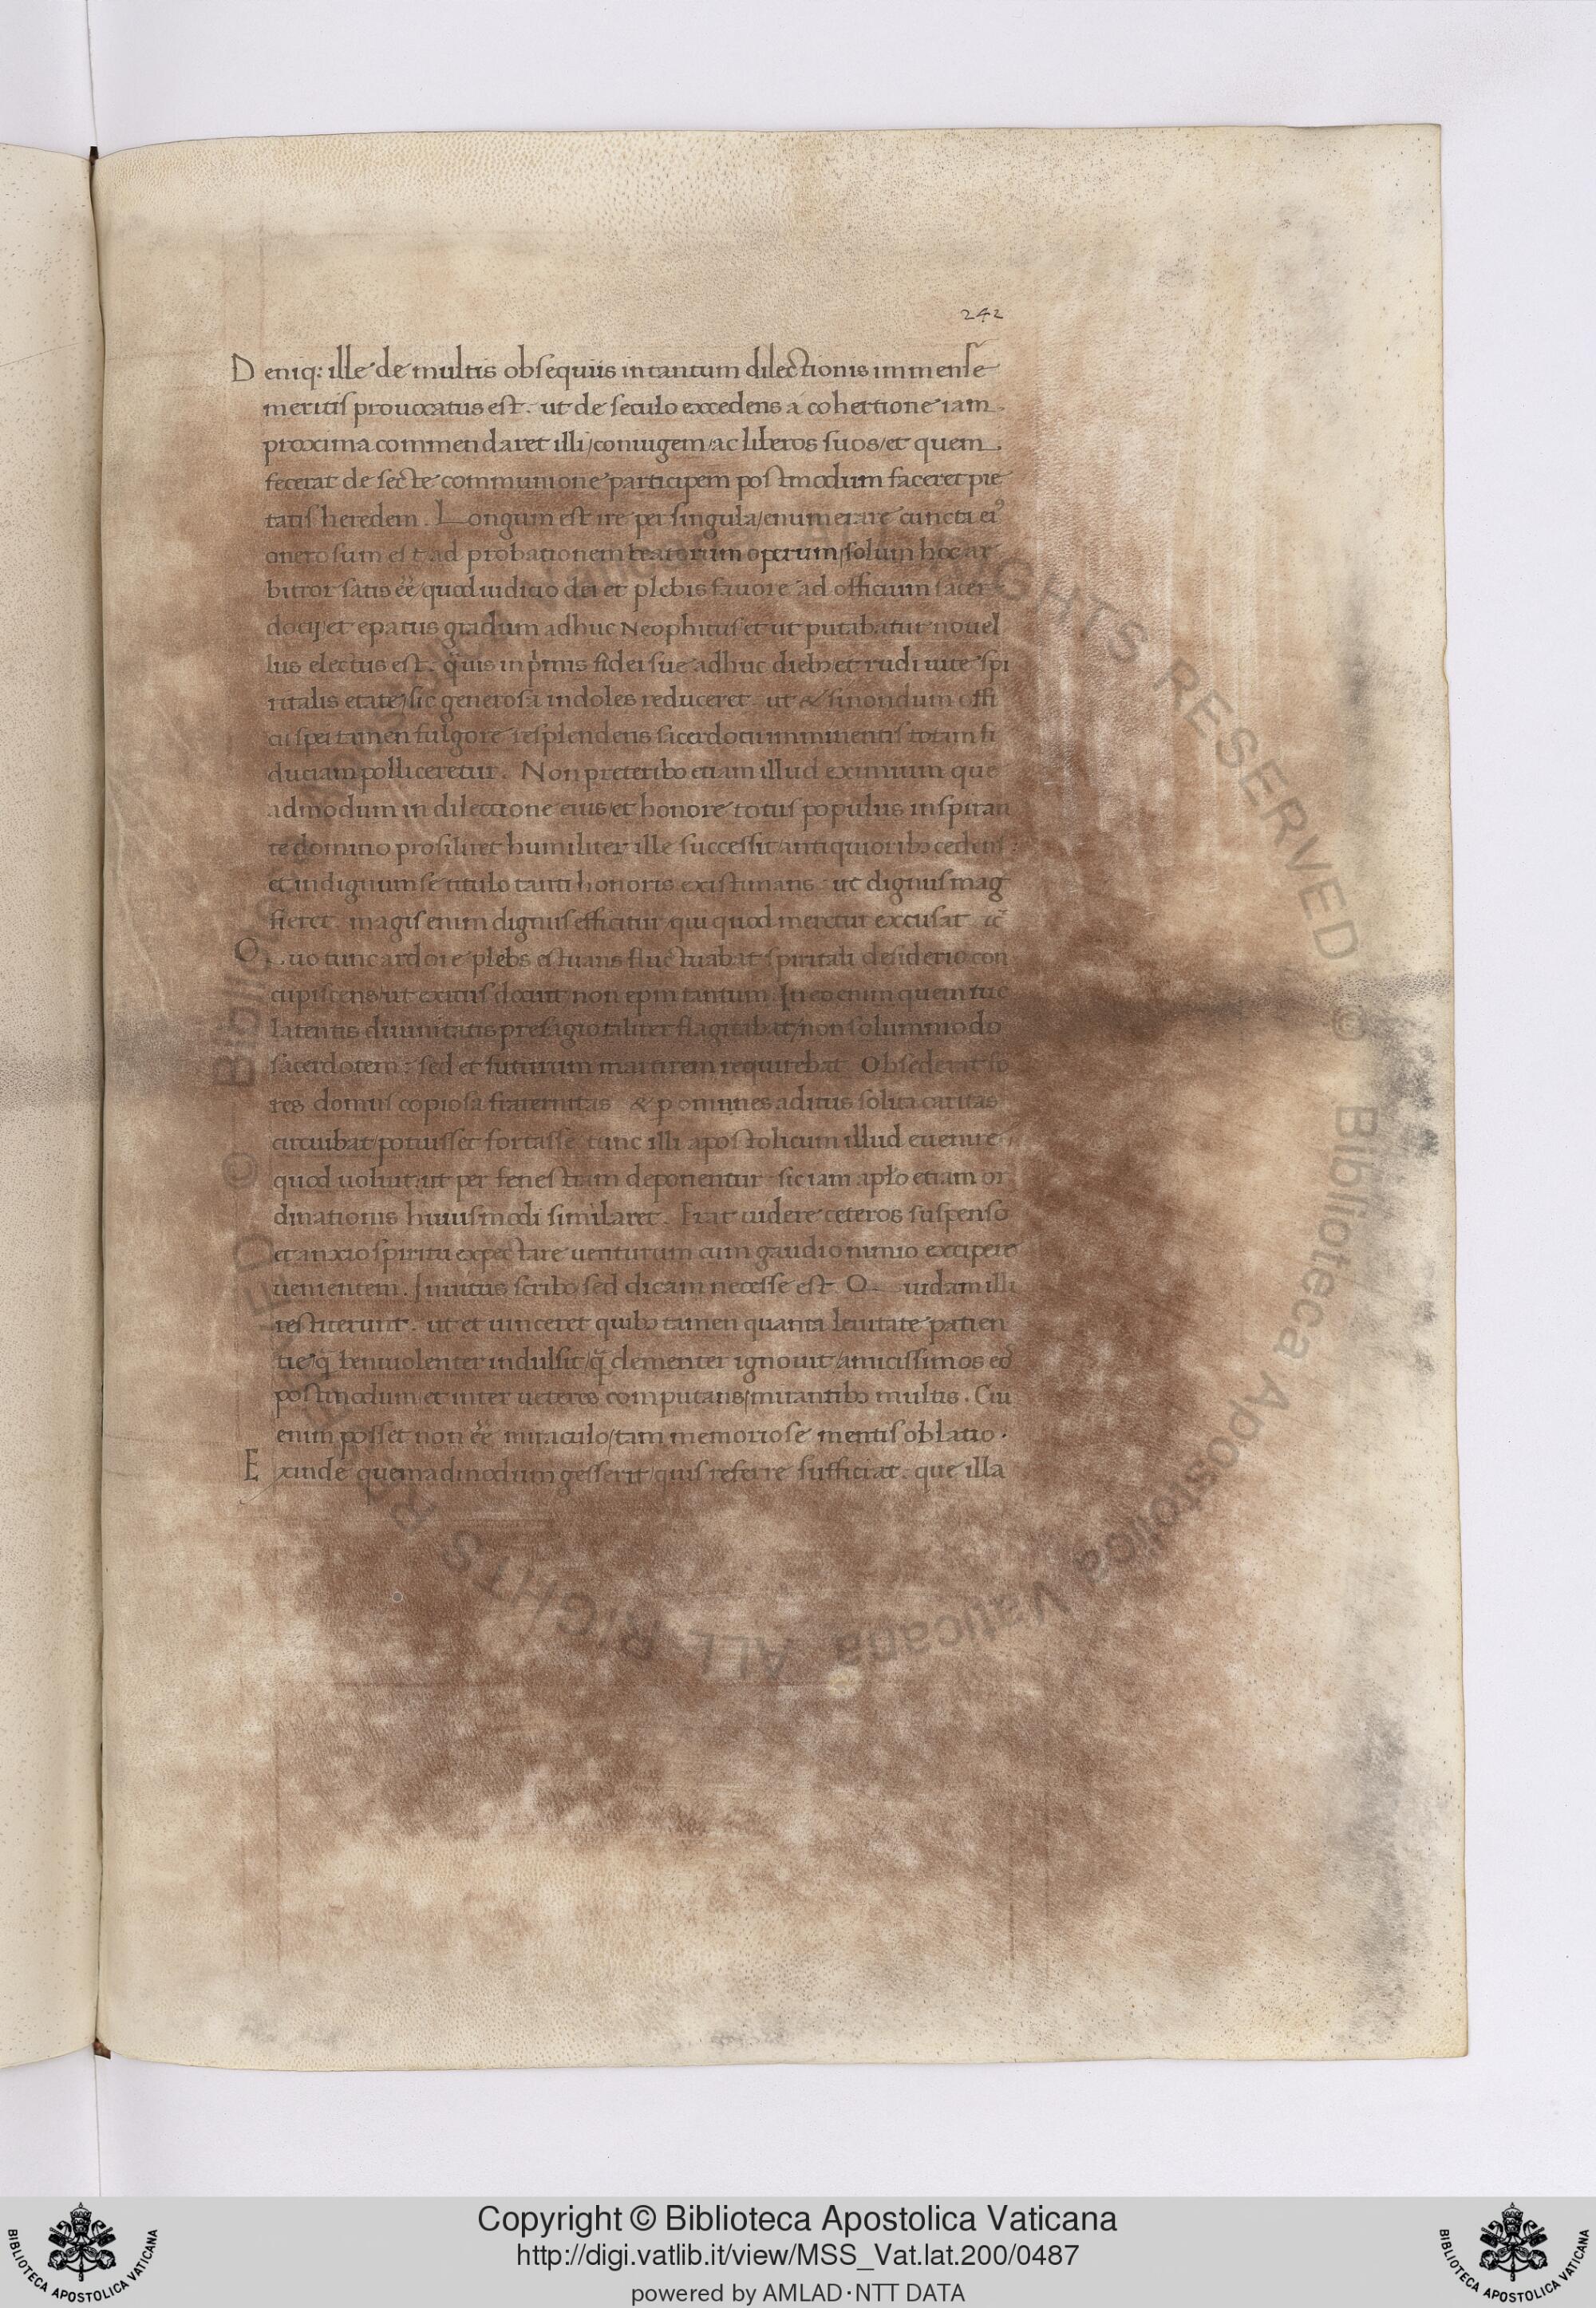 242
Deniq: ille de multis obsequiis in tantum dilectionis immense
meritis prouocatus est. ut de seculo excedens a cohertione iam.
proxima commendaret illi/coniugem/ac liberos suos/et quem.
fecerat de secte communione participem postmodum faceret pie
tatis heredem. Longum est ire per singula/enumerare cuncta ei9
onerosum est ad probationem beatorum operum/solum hoc ar
bitror satis eē/quod iudicio dei et plebis fauore ad officium sacer
docij/et epatus gradum adhuc Neophitus et ut putabatur nouel
lus electus est. quis in pmis fidei sue adhuc dieb et rudi uite spi
ritalis etate/sic generosa indoles reduceret. ut & si nondum offi
cii spei tamen fulgore resplendens sacerdocii imminentis totam fi
duciam polliceretur. Non preteribo etiam illud eximium que
admodum in dilectione eius/et honore totus populus inspiran
te domino prosiliret humiliter ille successit/antiquiorib cedens:
et indignum se titulo tanti honoris existimans. ut dignus mag
fieret. magis enim dignus efficitur qui quod meretur excusat
Quo tunc ardore plebs estuans fluctuabat spiritali desiderio con
cupiscens/ut exitus docuit non epm tantum. In eo enim quem tuc
latentis diuinitatis presagio taliter flagitabat/non solummodo
sacerdotem: sed et futurum martirem requirebat Obsederat fo
res domus copiosa fraternitas & p omnnes aditus solita caritas
circuibat/potuisset fortasse tunc illi apostolicum illud euenire
quod uoluit/ut per fenestram deponentur sic iam aplo etiam or
dinationis huiusmodi similaret. Erat uidere ceteros suspenso
et anxio spiritu expectare uenturum cum gaudio nimio excipere
uenientem. Inuitus scribo/sed dicam necesse est. Quidam illi
restiterunt. ut et uinceret quib tamen quanta leuitate patien
tie/q beniuolenter indulsit/q clementer ignouit/amicissimos eo
postmodum et inter ueteres computans/mirantib multis. Cui
enim posset non eē miraculo/tam memoriose mentis oblatio.
Exinde quemadmodum gesserit/quis referre sufficiat. que illa
Copyright © Biblioteca Apostolica Vaticana
http://digi.vatlib.it/view/MSS_Vat.lat.200/0487
powered by AMLAD·NTT DATA
BIBLIOTECA APOSTOLICA VATICANA
BIBLIOTECA APOSTOLICA VATICANA